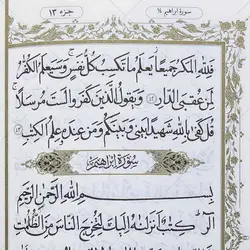 سورة ابراهيم ١٤
جزء ١٣
فَلِلّٰهِ الْمَكْرُ جَمِيعًا يَعْلَمُ مَا تَكْسِبُ كُلُّ نَفْسٍ وَسَيَعْلَمُ الْكُفّٰرُ
لِمَنْ عُقْبَى الدَّارِ ٤٢ وَيَقُولُ الَّذِينَ كَفَرُوا لَسْتَ مُرْسَلًا
قُلْ كَفٰى بِاللّٰهِ شَهِيدًا بَيْنِي وَبَيْنَكُمْ وَمَنْ عِنْدَهُ عِلْمُ الْكِتٰبِ ٤٣
سُورَةُ اِبْرٰهِيم
بِسْمِ اللّٰهِ الرَّحْمٰنِ الرَّحِيمِ
الٓرٰ كِتٰبٌ اَنْزَلْنٰهُ اِلَيْكَ لِتُخْرِجَ النَّاسَ مِنَ الظُّلُمٰتِ